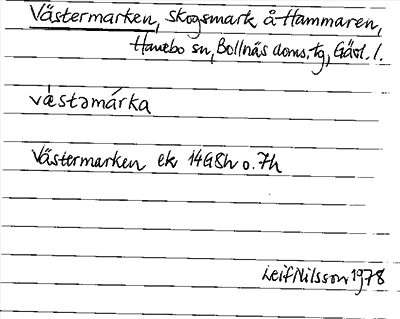 Västermarken, skogsmark å Hammaren,
Hanebo sn, Bollnäs doms.tg, Gävl. l.
væ̀stəmárka
Västermarken ek 14G8h o. 7h
Leif Nilsson 1978